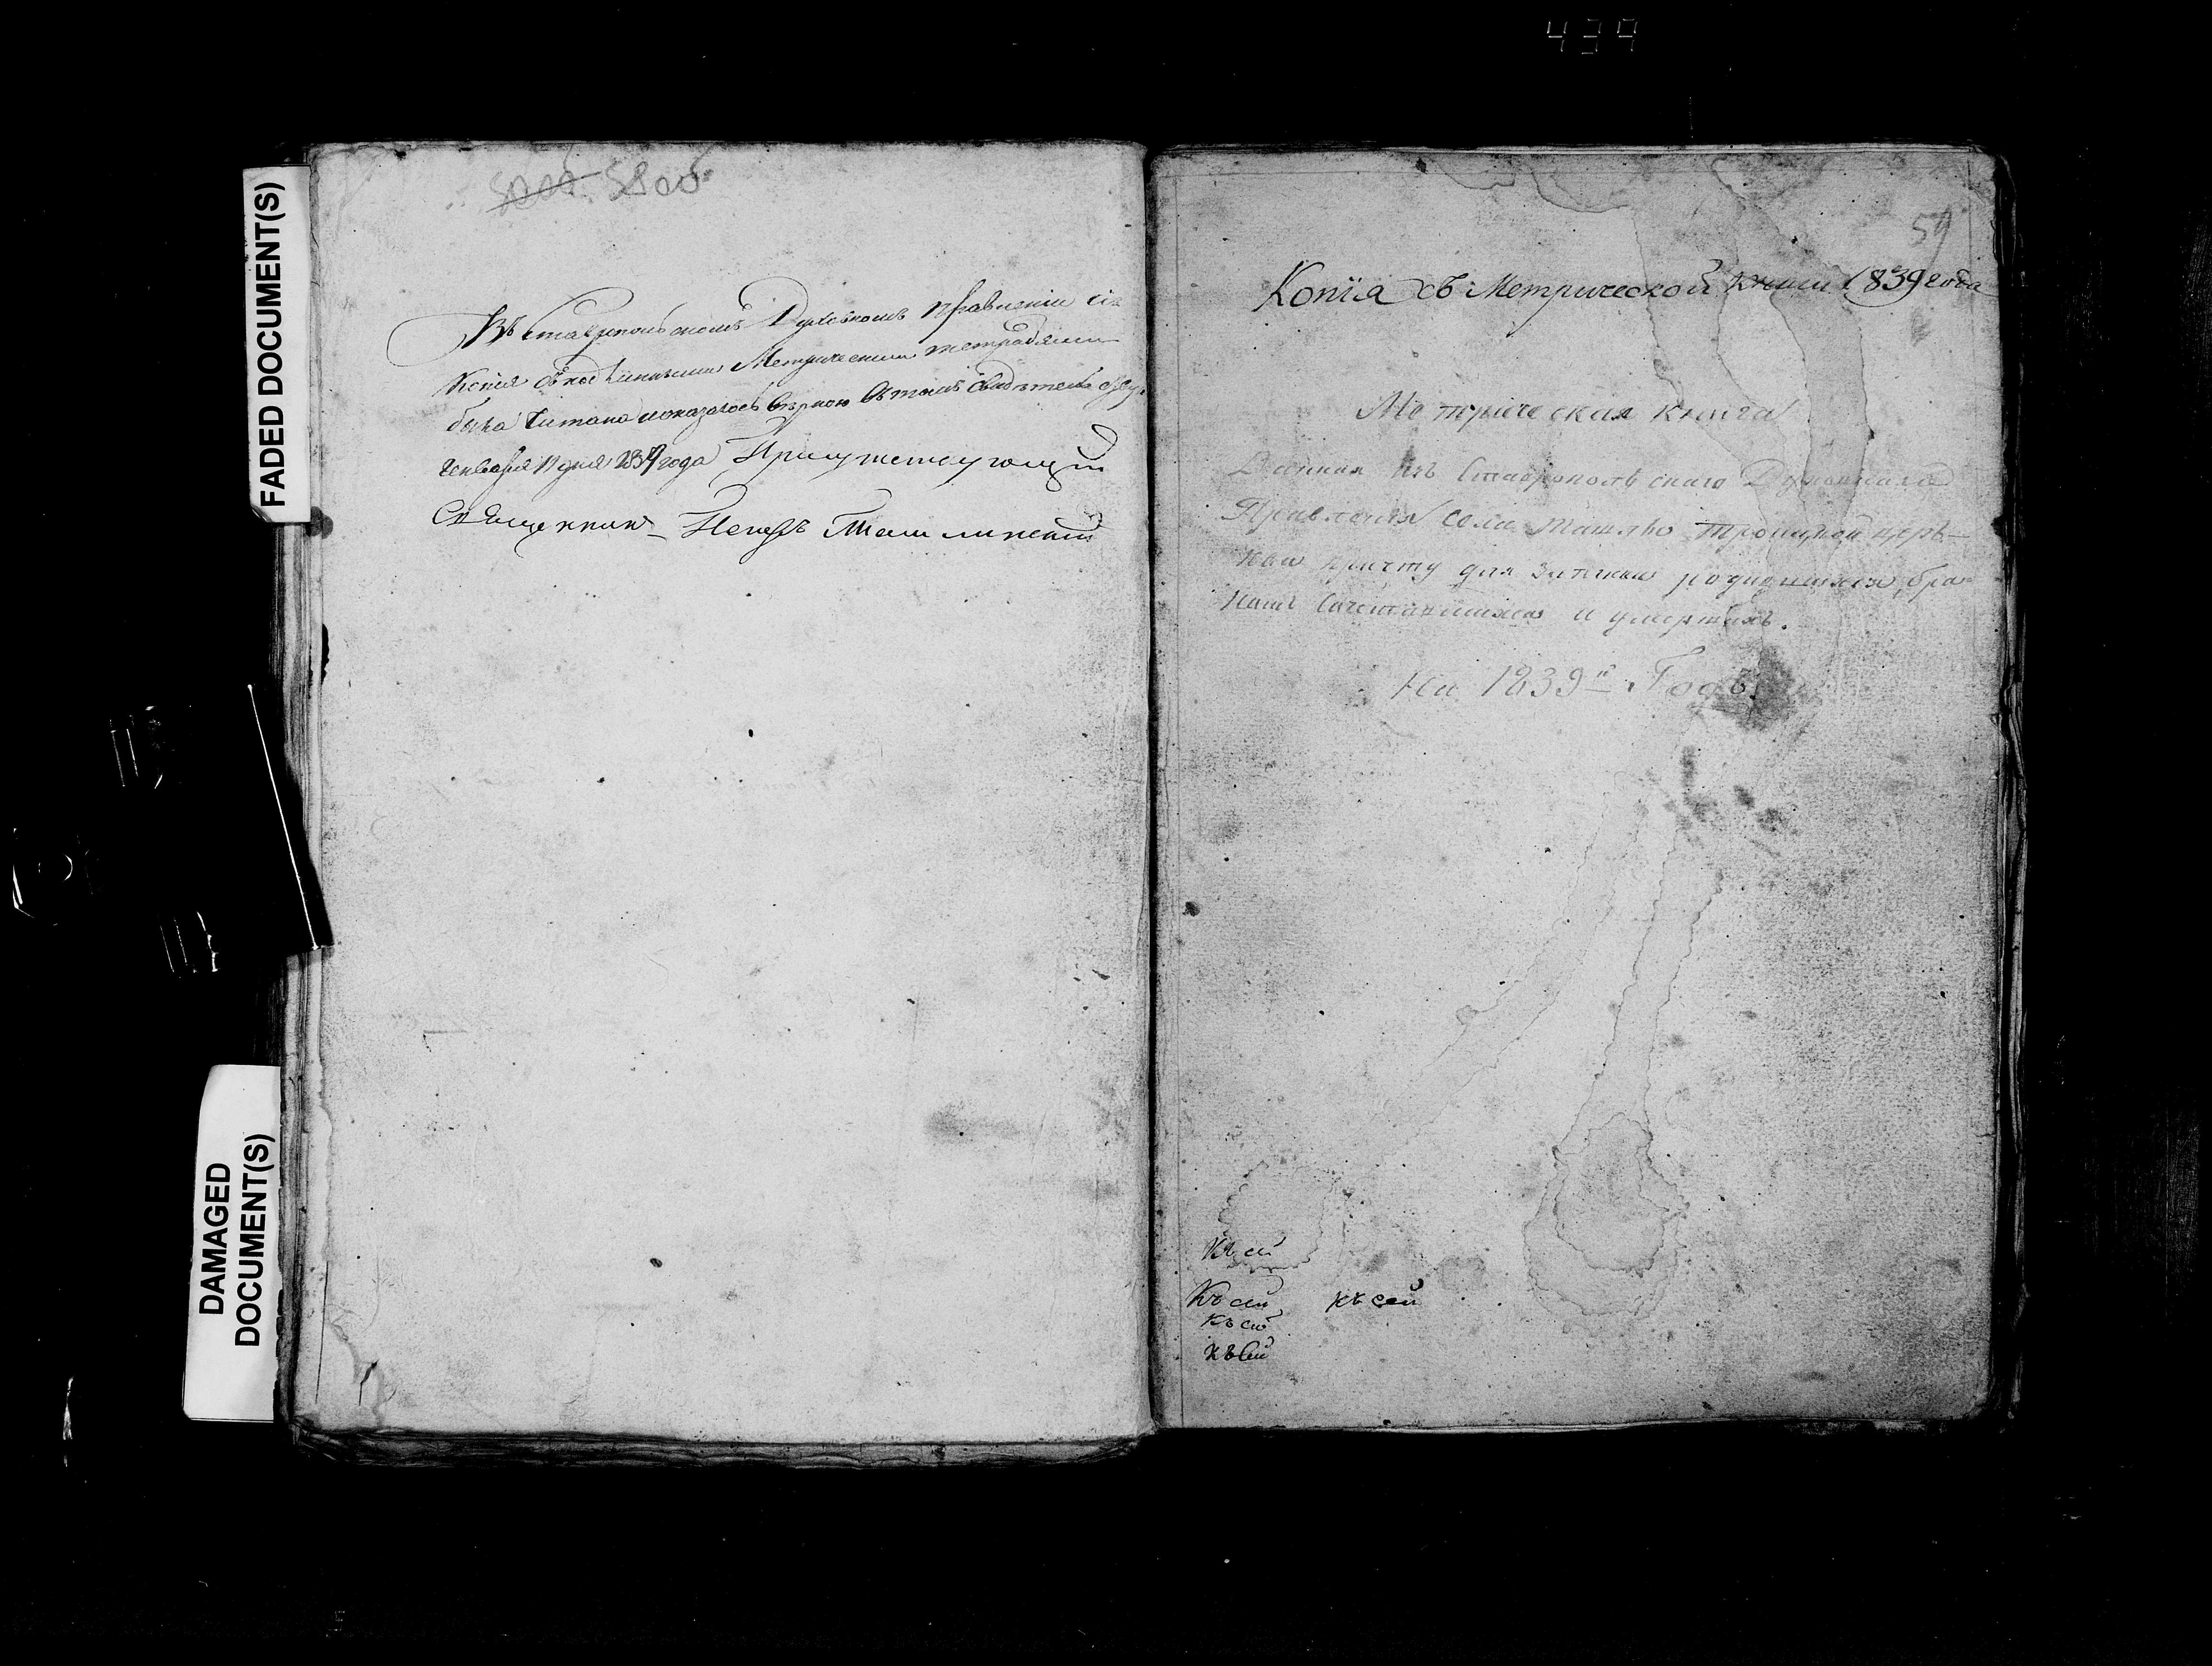 439
FADED DOCUMENT(S)
DAMAGED
DOCUMENT(S)
Въ Ставропольскомъ Духовномъ Правленіи сія
Копія съ подлинными Метрическими тетрадями
была читана и оказалось верною въ томъ свидетельствую
Генваря 11 дня 1839 года Присутствующій
Священник Петръ Ташлинскій
59
Копія съ Метрической книги 1839 года
Метрическая книга
Данная изъ Ставропольскаго Духовнаго
Правленія села Ташлы Троицкой церк-
ви причту для записки родившихся, бра-
комъ сочетавшихся и умершихъ.
На 1839й Годъ.
Къ сей
Къ сей къ сей
къ сей
къ сей